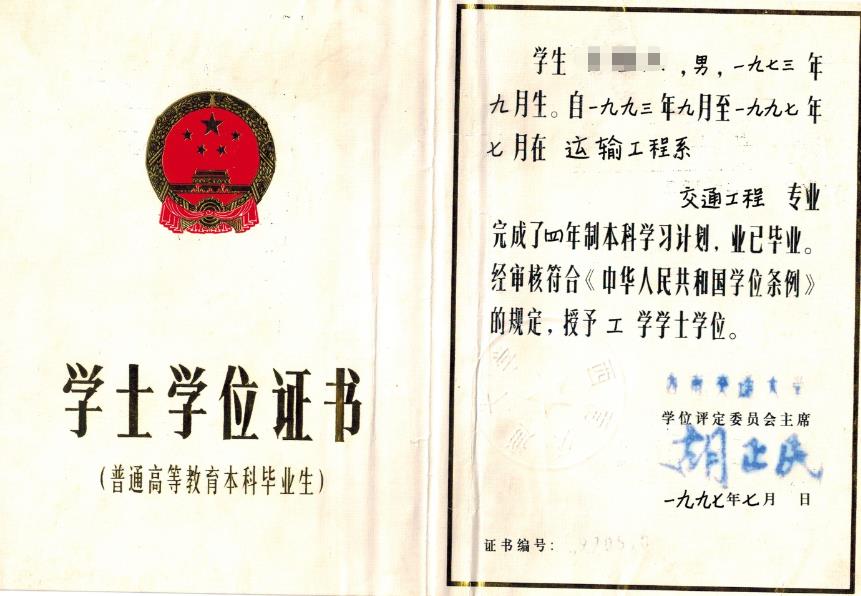 学士学位证书
(普通高等教育本科毕业生)
学生 ,男,一九七三年
九月生。自一九九三年九月至一九九七年
七月在 运输工程系
交通工程 专业
完成了四年制本科学习计划,业已毕业。
经审核符合《中华人民共和国学位条例》
的规定,授予 工 学学士学位。
西南交通大学
学位评定委员会主席
胡正民
一九九七年七月 日
证书编号: